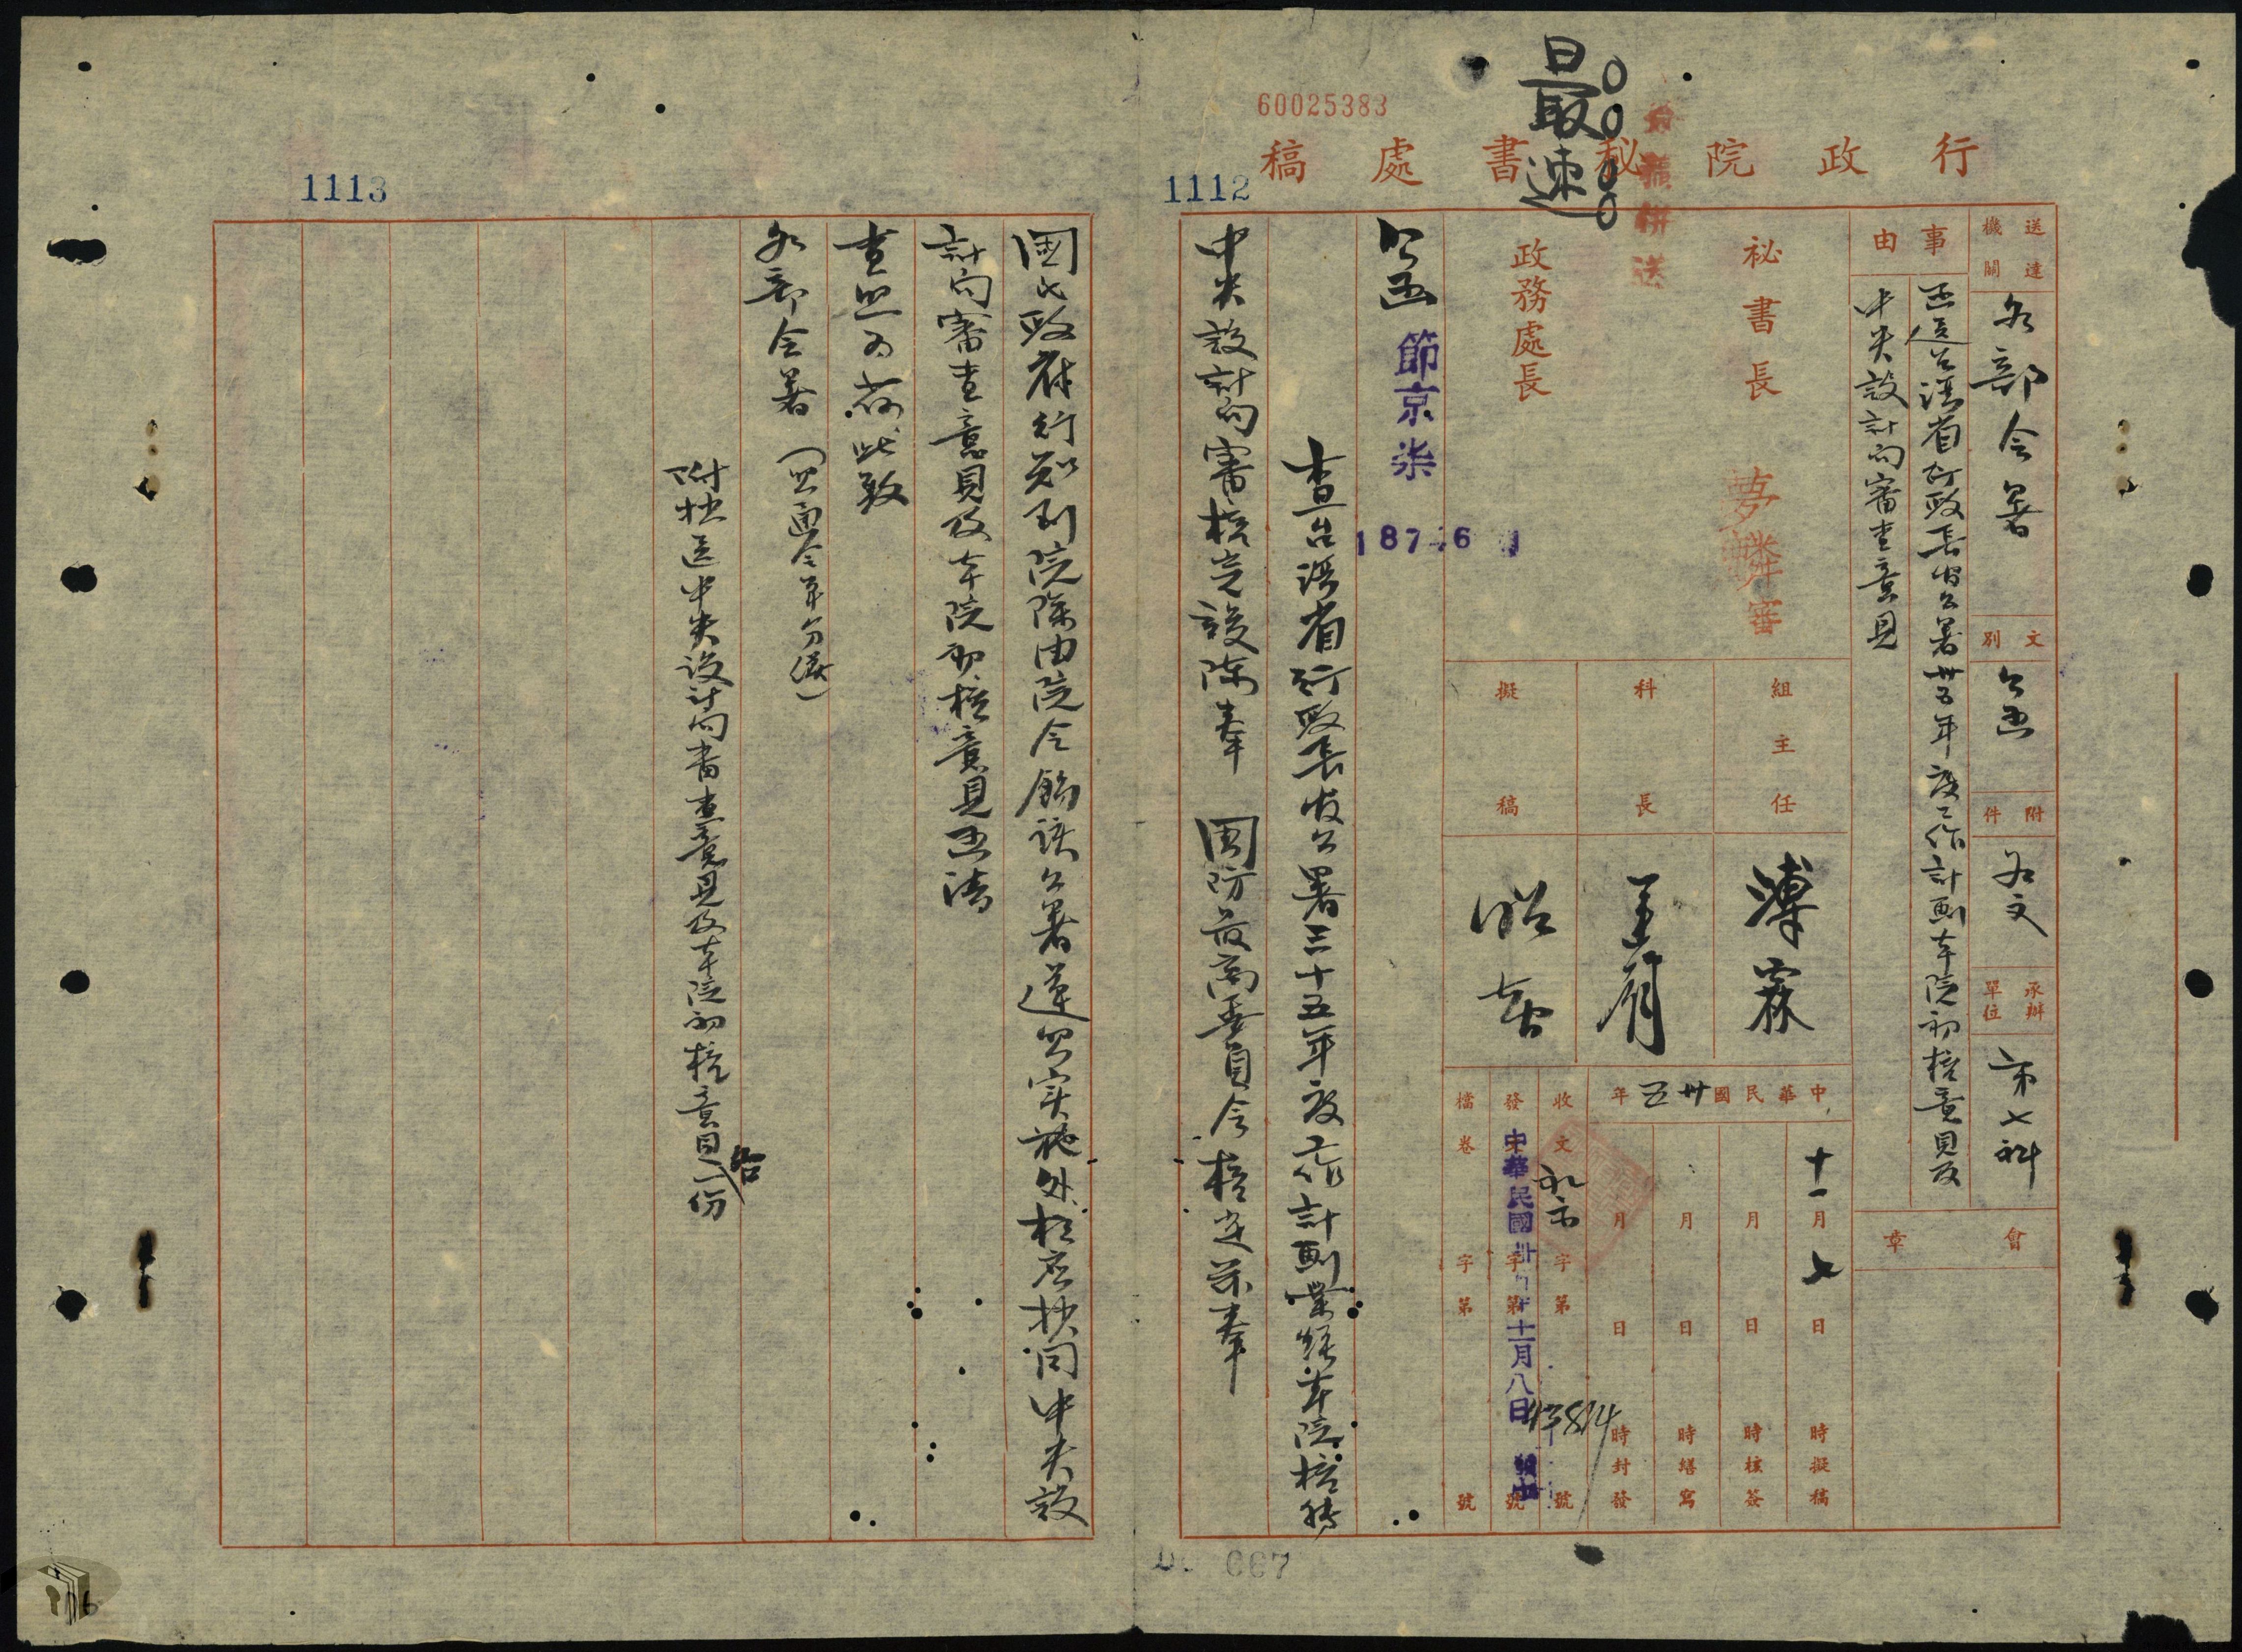 60025383
最速
行政院秘書處稿
1112
送達機關
各部會署
文別
公函
附件
如文
承辦單位
第七科
事由
函送台灣省行政長官公署卅五年度工作計劃本院初核意見及
中央設計局審查意見
會章
秘書長
夢麟
審
政務處長
組主任
科長
擬稿
中華民國卅五年
十一月七日時擬稿
月日時核簽
月日時繕寫
月日時封發
收文字第號
發文字第號
中華民國卅五年十一月八日
檔卷字第號
公函
節京柒
查台灣省行政長官公署三十五年度工作計劃業經本院核轉
中央設計局審核完竣陳奉 國防最高委員會核定茲奉
1113
國民政府行知到院除由院令飭該公署遵照實施外相應抄同中央設
計局審查意見及本院初核意見函請
查照為荷此致
各部會署(照通令單分繕)
附抄送中央設計局審查意見及本院初核意見各一份
667